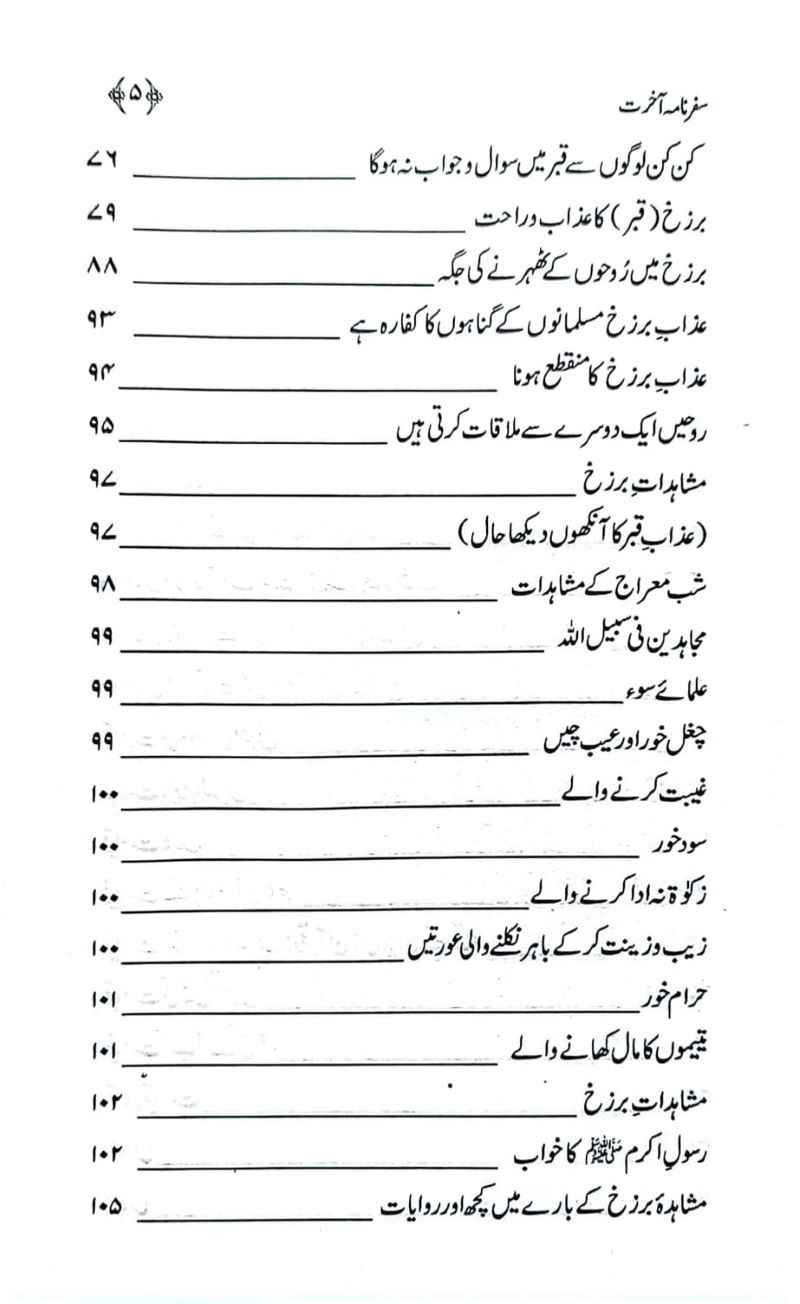 سفرنامہ آخرت ﴿۵﴾
کن کن لوگوں سے قبر میں سوال و جواب نہ ہوگا ____ ۷۶
برزخ (قبر) کا عذاب و راحت ____ ۷۹
برزخ میں رُوحوں کے ٹھہرنے کی جگہ ____ ۸۸
عذابِ برزخ مسلمانوں کے گناہوں کا کفارہ ہے ____ ۹۳
عذابِ برزخ کا منقطع ہونا ____ ۹۴
روحیں ایک دوسرے سے ملاقات کرتی ہیں ____ ۹۵
مشاہداتِ برزخ ____ ۹۷
(عذابِ قبر کا آنکھوں دیکھا حال) ____ ۹۷
شب معراج کے مشاہدات ____ ۹۸
مجاہدین فی سبیل اللہ ____ ۹۹
علمائے سوء ____ ۹۹
چغل خور اور عیب چیں ____ ۹۹
غیبت کرنے والے ____ ۱۰۰
سود خور ____ ۱۰۰
زکوٰۃ نہ ادا کرنے والے ____ ۱۰۰
زیب و زینت کر کے باہر نکلنے والی عورتیں ____ ۱۰۰
حرام خور ____ ۱۰۱
یتیموں کا مال کھانے والے ____ ۱۰۱
مشاہداتِ برزخ ____ ۱۰۲
رسولِ اکرم ﷺ کا خواب ____ ۱۰۲
مشاہدۂ برزخ کے بارے میں کچھ اور روایات ____ ۱۰۵